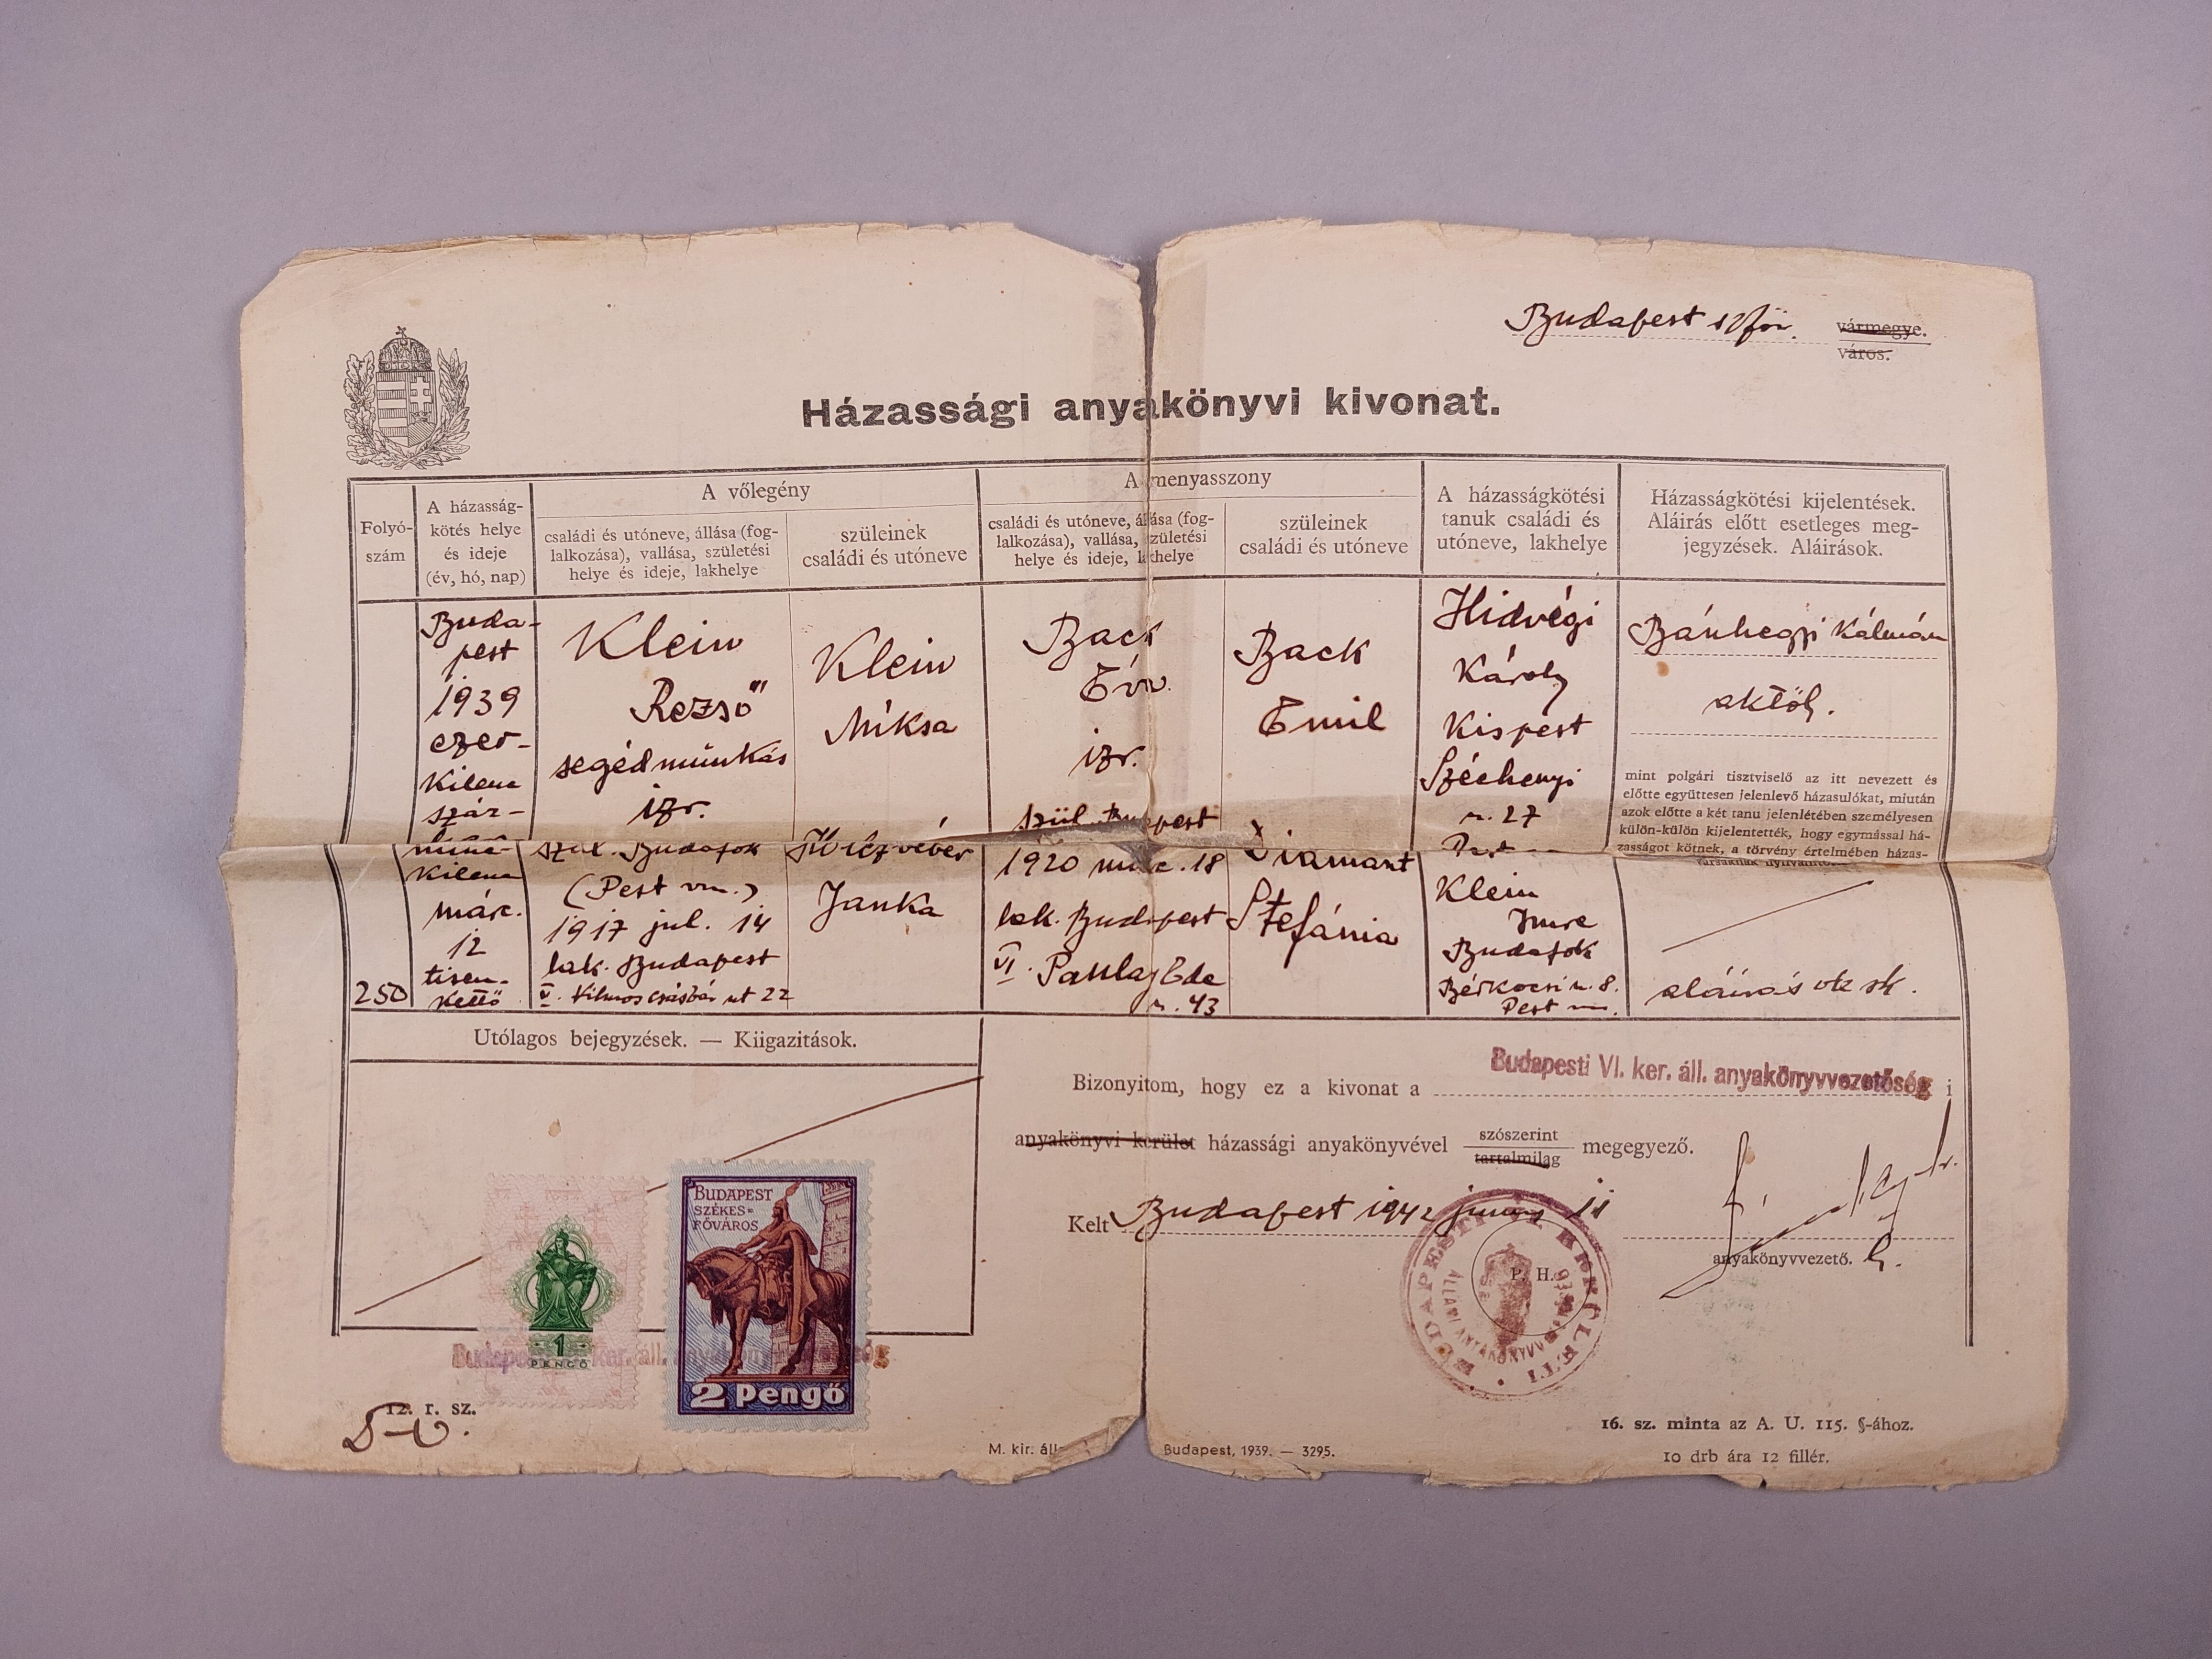 Budapest
vármegye.
város.
Házassági anyakönyvi kivonat.
Folyó-
szám
A házasság-
kötés helye
és ideje
(év, hó, nap)
A vőlegény
családi és utóneve, állása (fog-
lalkozása), vallása, születési
helye és ideje, lakhelye
szüleinek
családi és utóneve
A menyasszony
családi és utóneve, állása (fog-
lalkozása), vallása, születési
helye és ideje, lakhelye
szüleinek
családi és utóneve
A házasságkötési
tanuk családi és
utóneve, lakhelye
Házasságkötési kijelentések.
Aláirás előtt esetleges meg-
jegyzések. Aláirások.
250
Buda-
pest
1939
ezer-
kilenc
száz-
kilenc
márc.
12
tizen-
kettő
Klein
Rezső
segédmunkás
izr.
szül. Budafok
(Pest vm.)
1917 jul. 14
lak. Budapest
V. Vilmos császár ut 22
Klein
Miksa
Janka
Back
Éva
izr.
szül. Budapest
1920 márc. 18
lak. Budapest
VI. Paulay Ede
u. 43
Back
Emil
Diamant
Stefánia
Hidvégi
Károly
Kispest
Széchenyi
u. 27
Klein
Imre
Budafok
Bérkocsi u. 8.
Pest vm.
Bánhegyi Kálmán
mint polgári tisztviselő az itt nevezett és
előtte együttesen jelenlevő házasulókat, miután
azok előtte a két tanu jelenlétében személyesen
külön-külön kijelentették, hogy egymással há-
zasságot kötnek, a törvény értelmében házas-
társaknak nyilvánította
aláirás
Utólagos bejegyzések. — Kiigazitások.
Budapesti VI. ker. áll. anyakönyvvezetőség
Bizonyitom, hogy ez a kivonat a i
anyakönyvi kerület házassági anyakönyvével szószerint
tartalmilag megegyező.
Kelt Budapest 1942 junius 11
P. H.
anyakönyvvezető.
BUDAPEST
SZÉKES-
FŐVÁROS
2 Pengő
1
PENGŐ
12. r. sz.
M. kir. áll
Budapest, 1939. — 3295.
16. sz. minta az A. U. 115. §-ához.
10 drb ára 12 fillér.